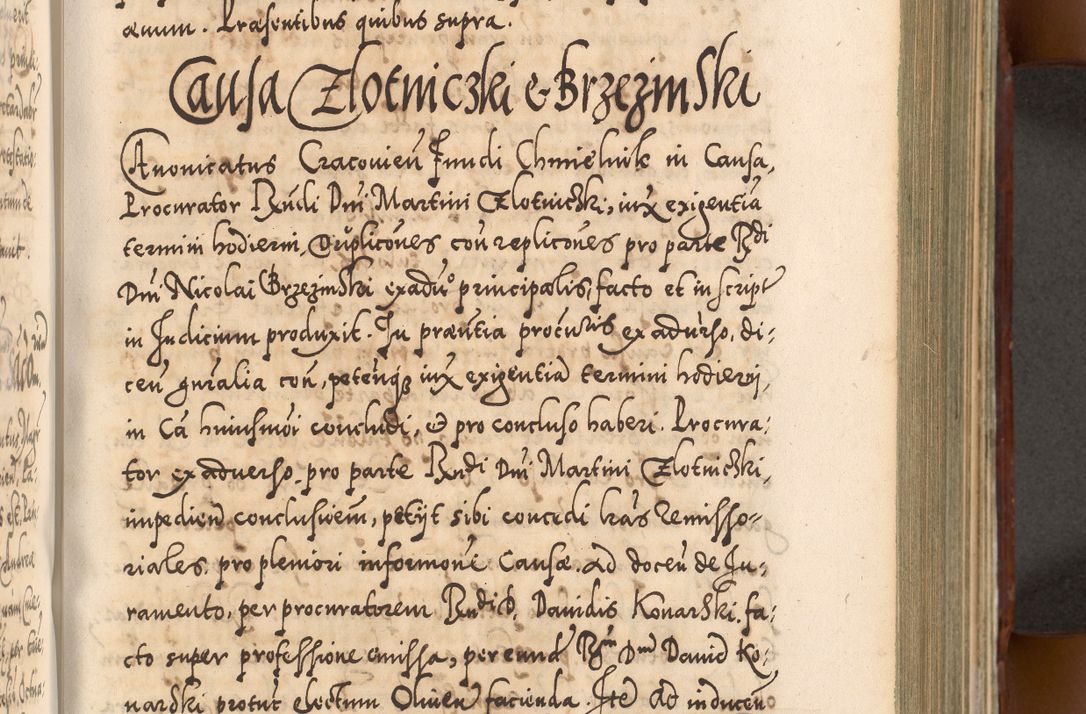 æuum. Præsentibus quibus supra.
Causa Złotniczki & Brzęzinski
Canonicatus Cracovień Fundi Chmielnik in Causa,
Procurator Rndi Dni Martini Złotniczki, iux exigentia
termini hodierni, Duplicoues con replicoues pro parte Rndi
Dni Nicolai Brzęzinski ex aduo principalis, facto et in script
in Iudicium produxit. In præntia procutis ex aduerso, di,
ceń gnralia con, peteńq; iux exigentia termini hodierni,
in Cā huiusmōi concludi, & pro concluso haberi. Procura,
tor ex aduerso, pro parte Rndi Dni Martini Złotniczki,
impedień conclusiōem, petijt sibi concedi lrās Remisso,
riales, pro pleniori informōne Causæ. ad doceń de Iu,
ramento, per procuratorem Rndi D. Dauidis Konarski, fa,
cto super professione emissa, per eund Rndm Dnm Dauid Ko,
narski protūc electum Oliueń facienda. Ite ad induceń